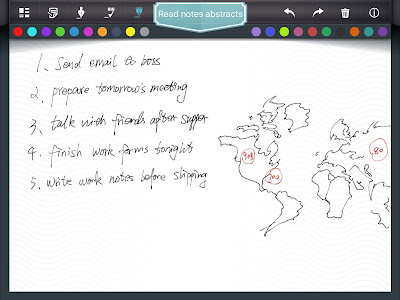 Read notes abstracts
1. Send email to boss
2. prepare tomorrow's meeting
3. talk with friends after supper
4. finish work forms tonight
5. write work notes before shipping
80